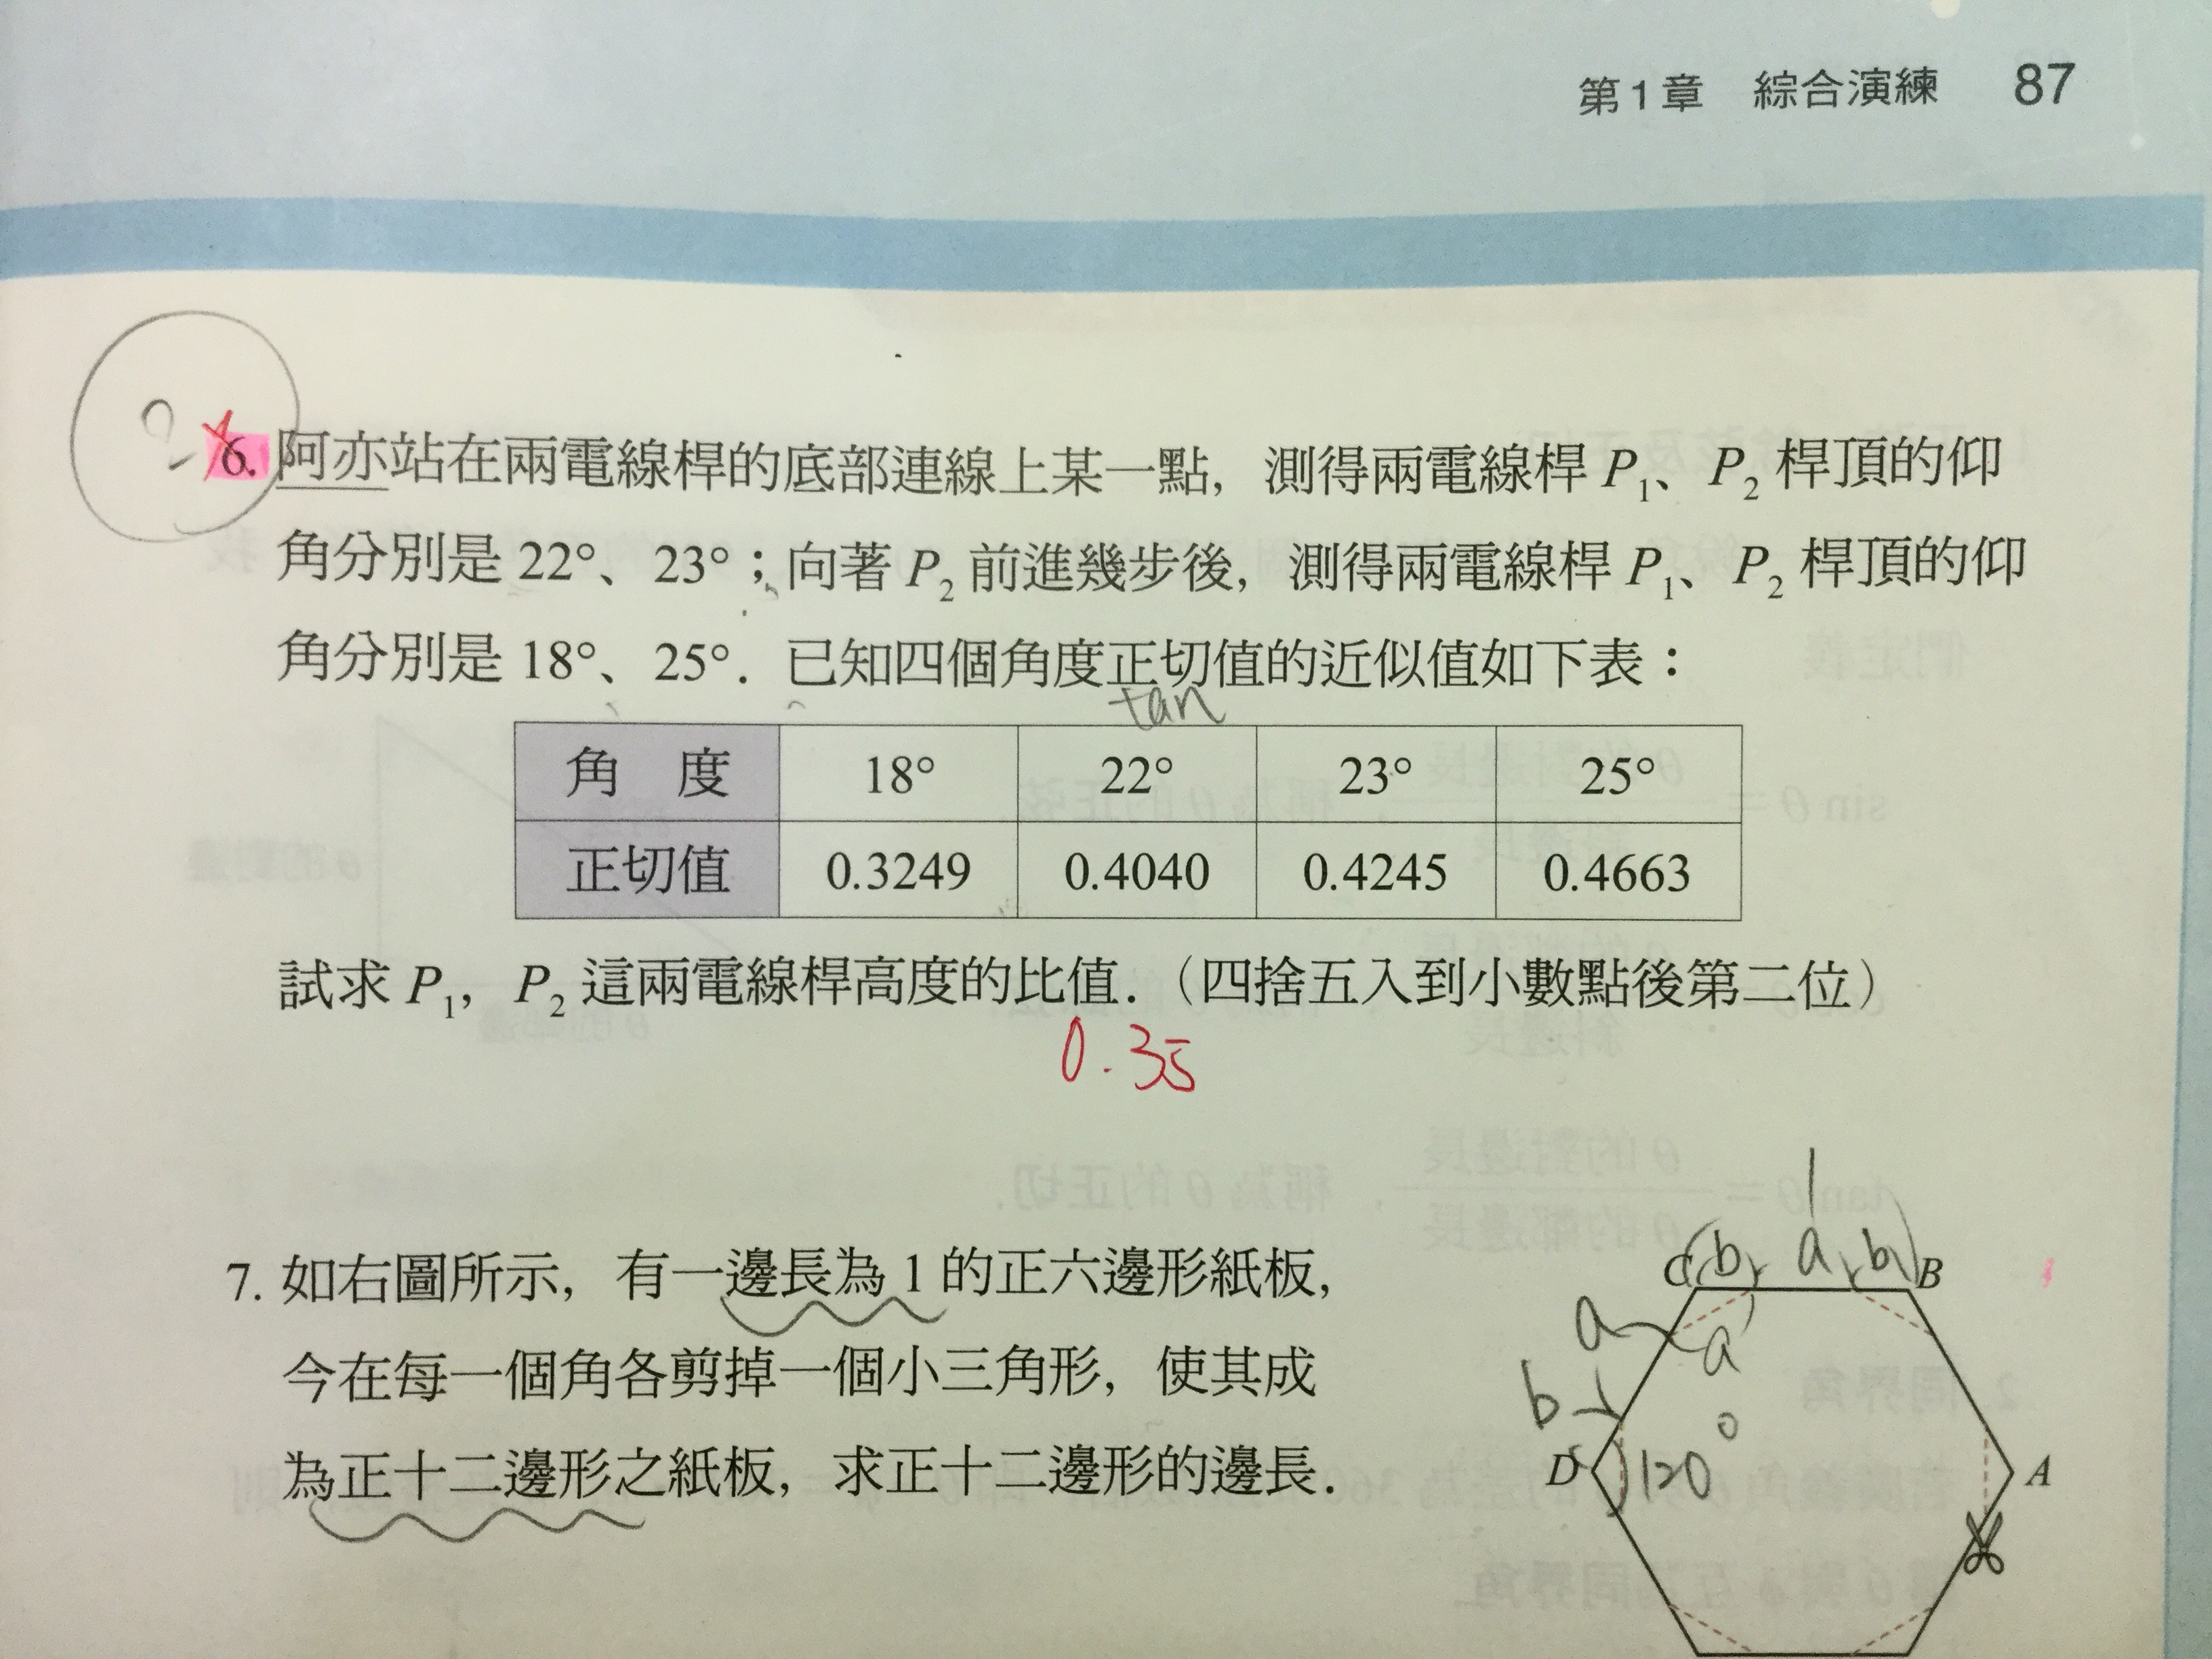 第1章 綜合演練 87
2 6. 阿亦站在兩電線桿的底部連線上某一點，測得兩電線桿 P₁、P₂ 桿頂的仰
角分別是 22°、23°；向著 P₂ 前進幾步後，測得兩電線桿 P₁、P₂ 桿頂的仰
角分別是 18°、25°．已知四個角度正切值的近似值如下表：
tan
角 度 18° 22° 23° 25°
正切值 0.3249 0.4040 0.4245 0.4663
試求 P₁，P₂ 這兩電線桿高度的比值．（四捨五入到小數點後第二位）
0.35
7. 如右圖所示，有一邊長為 1 的正六邊形紙板，
今在每一個角各剪掉一個小三角形，使其成
為正十二邊形之紙板，求正十二邊形的邊長．
1
C b a b B
a a
b
D 120° A